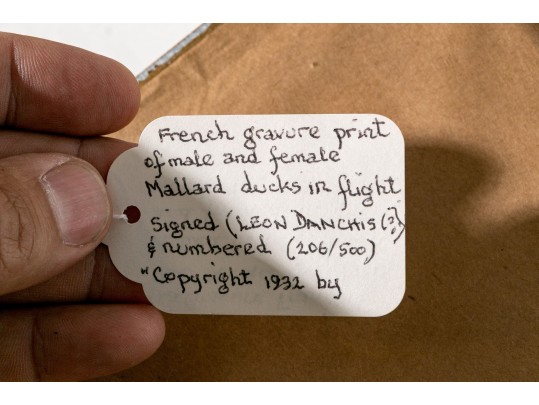 French gravure print
of male and female
Mallard ducks in flight
Signed (LEON DANCHIS (?)
& numbered (206/500)
"Copyright 1932 by